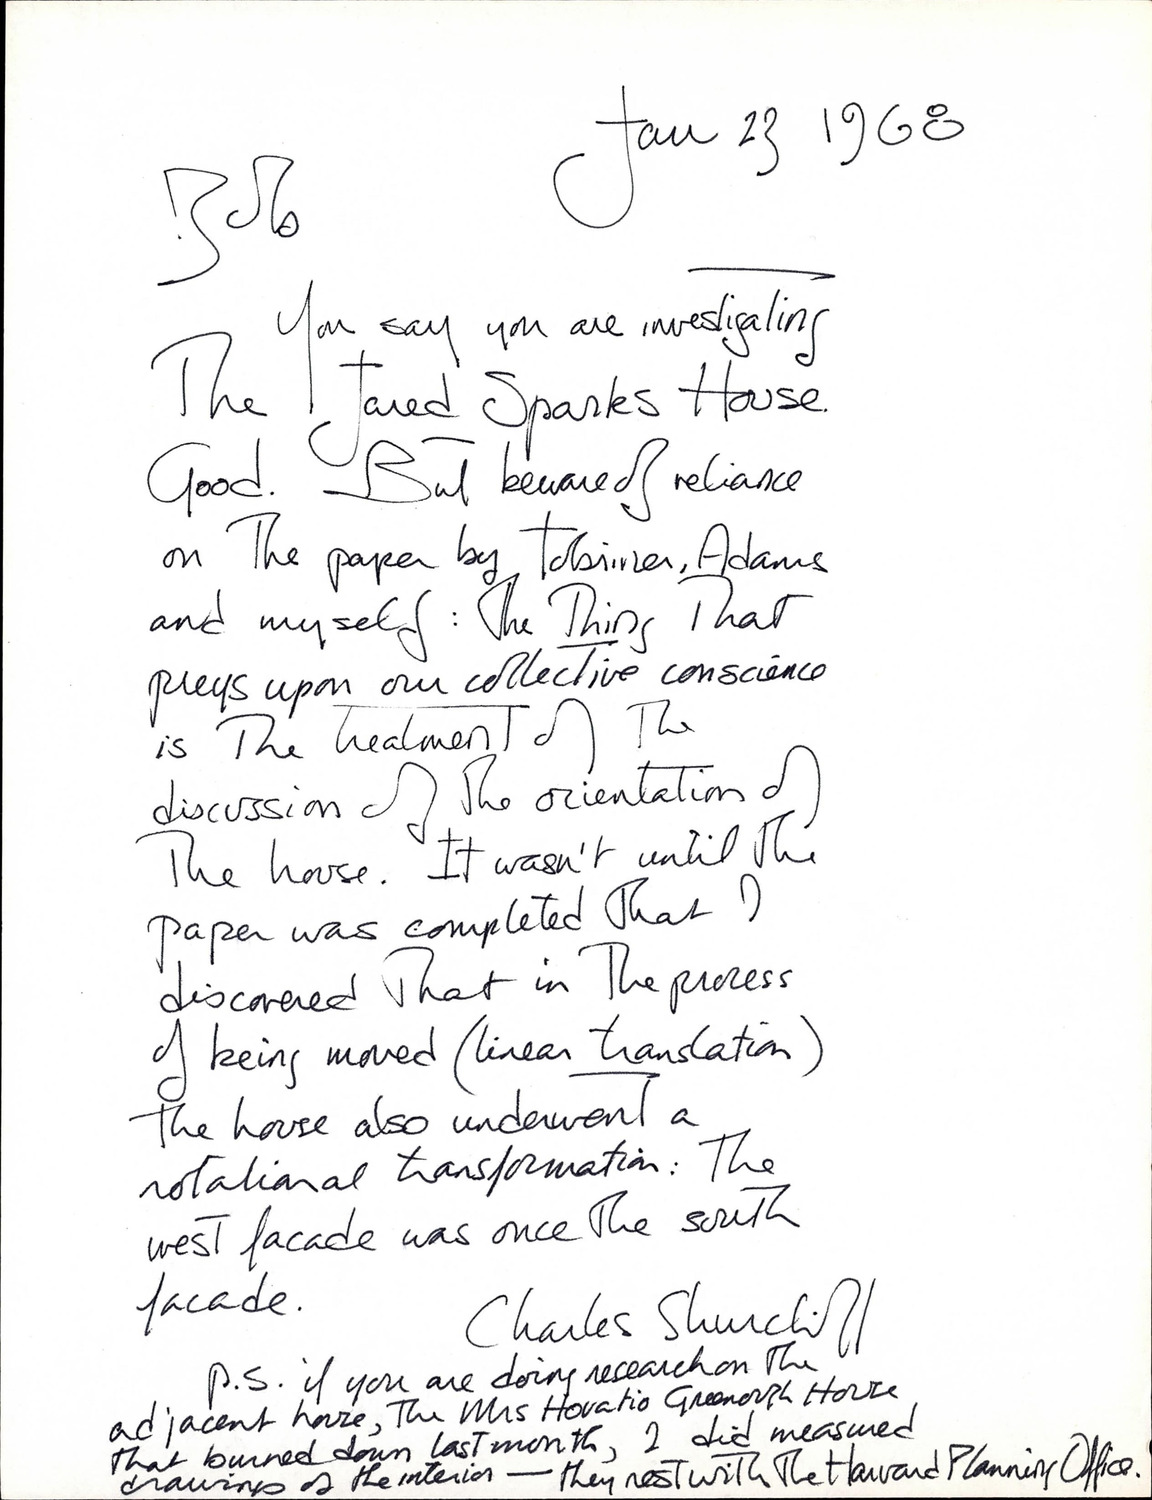 Jan 23 1968
Bob
You say you are investigating
The Jared Sparks House.
Good. But beware of reliance
on The paper by Tobriner, Adams
and myself: The Thing That
preys upon our collective conscience
is The treatment of The
discussion of The orientation of
The house. It wasn't until The
paper was completed That I
discovered That in The process
of being moved (linear translation)
the house also underwent a
rotational transformation: The
west facade was once The south
facade.
Charles Shurcliff
p.s. if you are doing research on The
adjacent house, The Mrs Horatio Greenough House
that burned down last month, I did measured
drawings of the interior — they rest with The Harvard Planning Office.